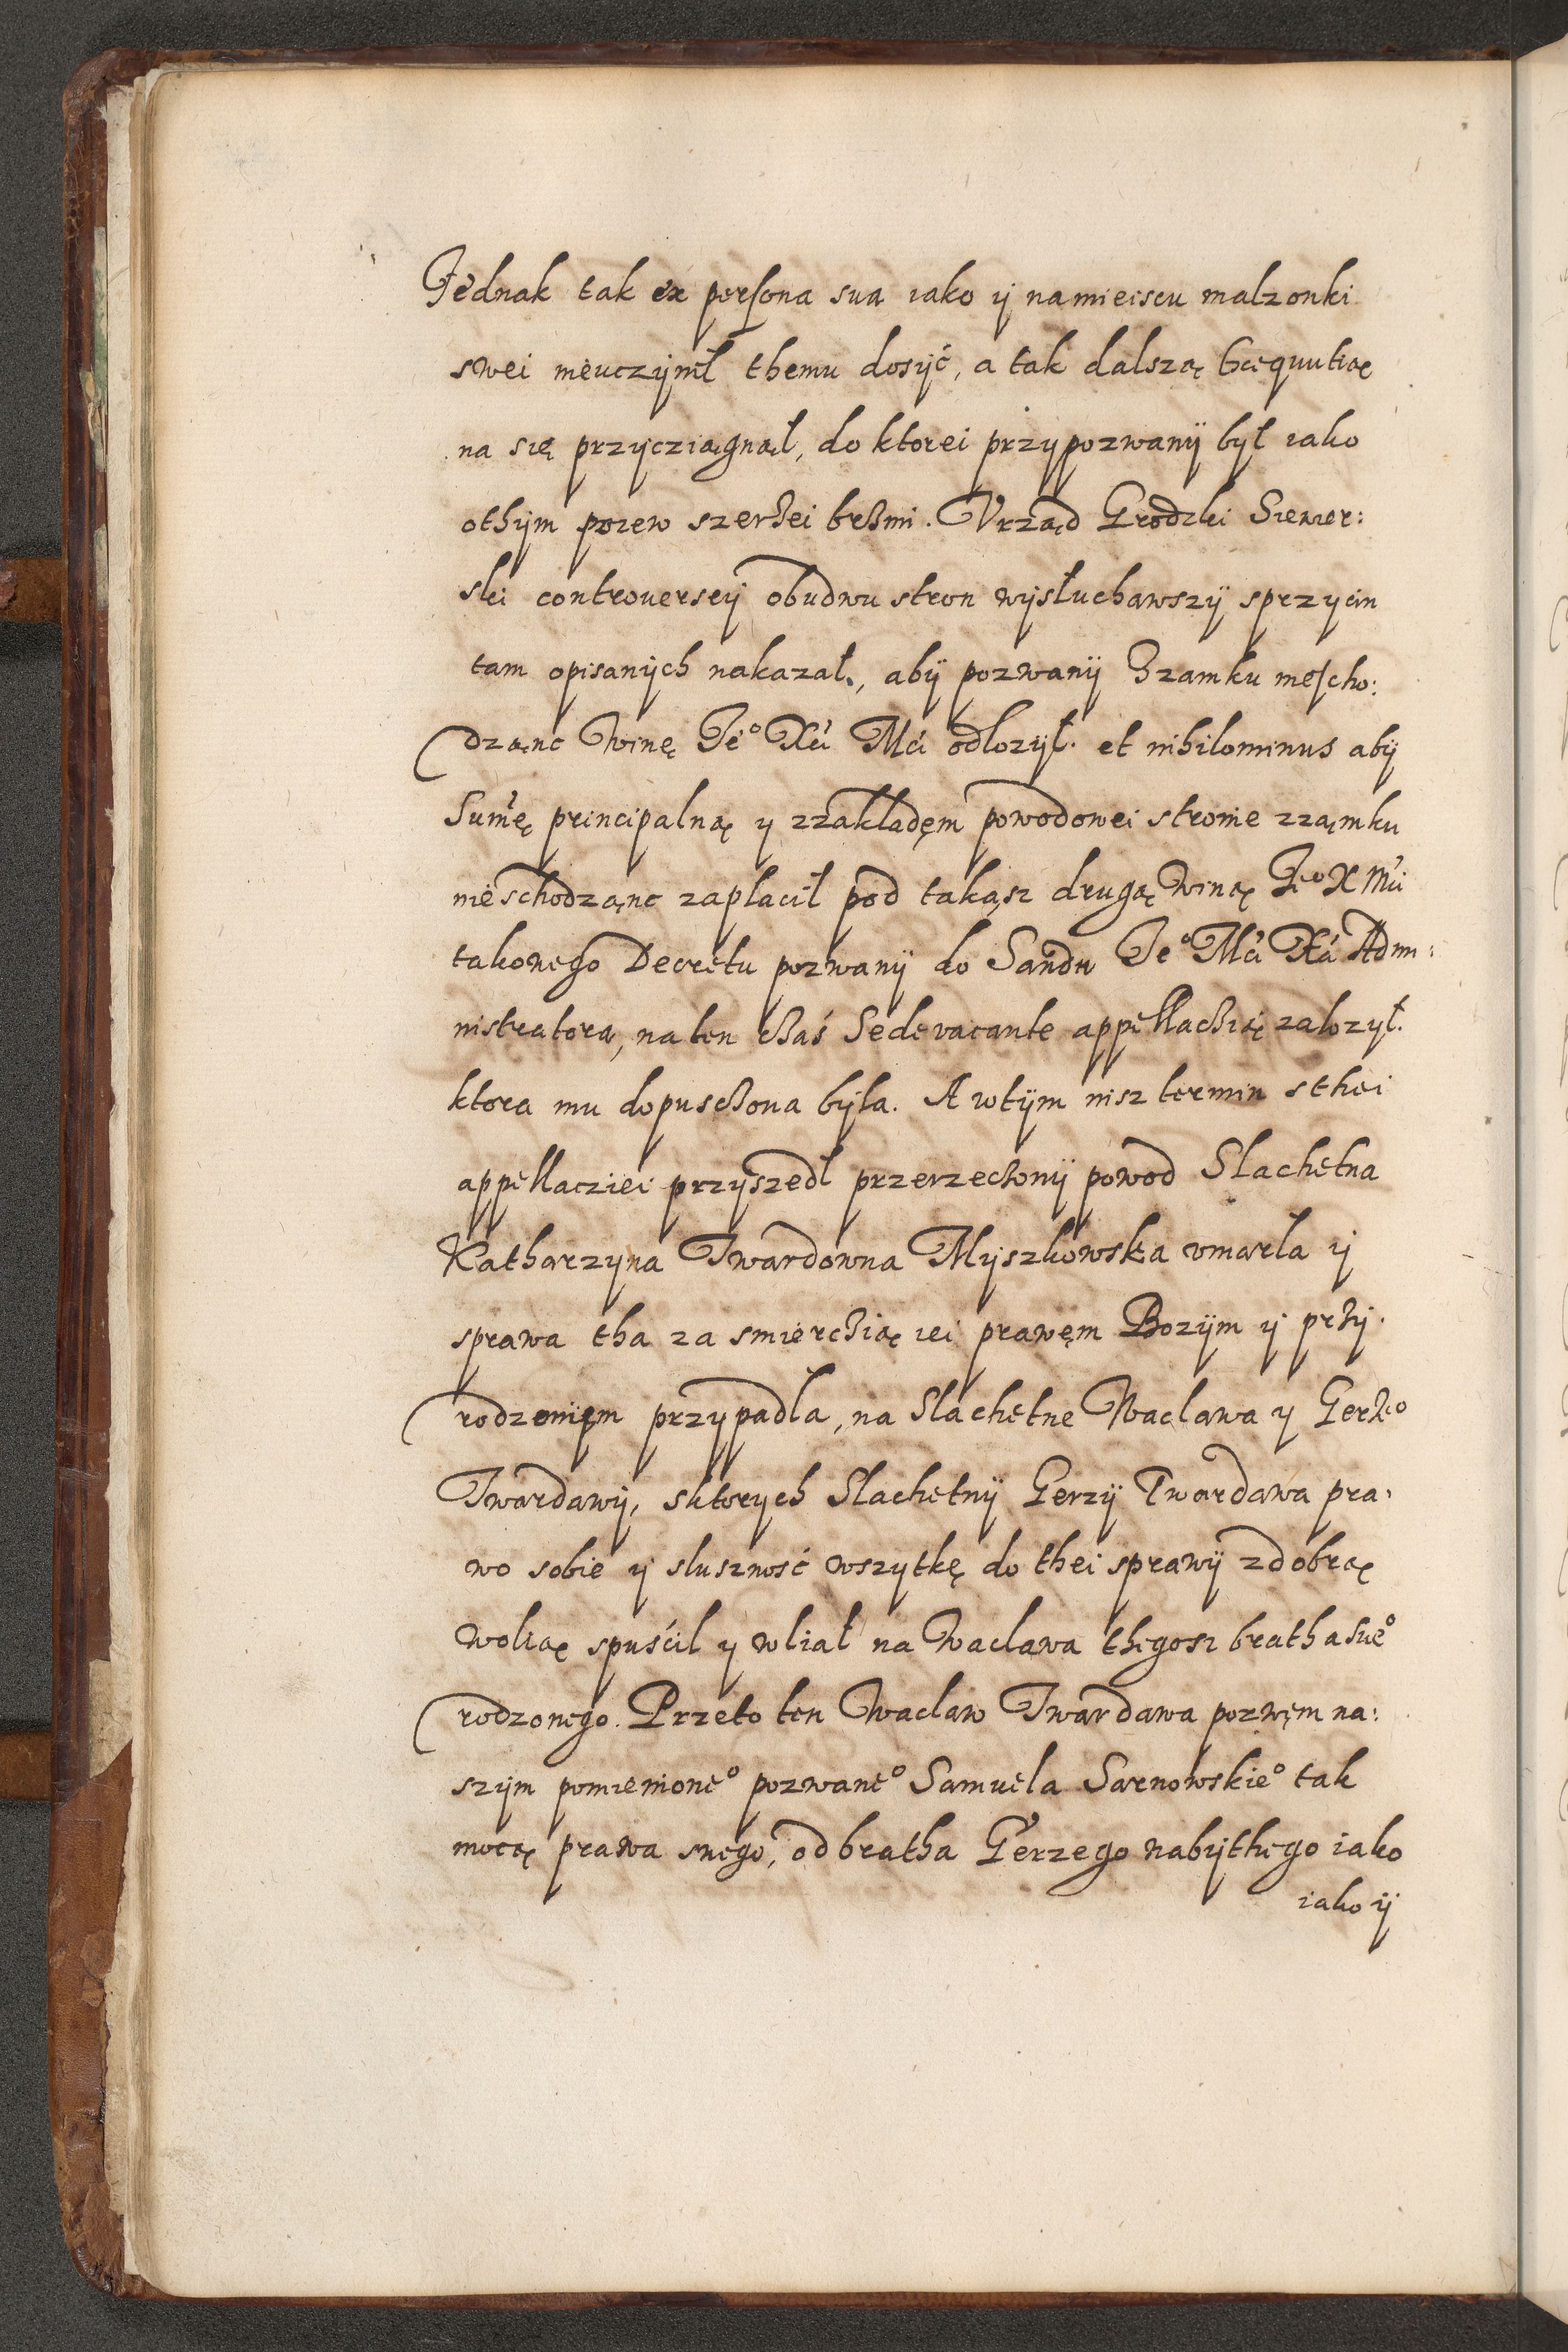 Jednak tak ex persona sua iako ij na mieiscu malzonki
swei nieuczijnił themu dosijć, a tak dalszą Exequutią
na się przycziągnął, do ktorei przypozwanij był iako
othijm pozew szerzei brzmi. Vrząd Grodzki Siewier:
ski controuersyj obudwu stron wijsłuchawszij sprzycin
tam opisanijch nakazał, abij pozwanij Zzamku niescho:
dząnc winę Je° Xci Mci odłozył. et nihilominus abij
Summę principalną y zzakładęm powodowei stronie zząmku
nieschodząnc zaplacił pod takąsz drugą winą Je° X Mci
takowego Decretu pozwanij do Sandu Je° Mci Xa Admi:
nistratora, na ten czas Sede vacante appellaczią załozył.
ktora mu dopusczona była. A wtijm nisz termin sthei
appellacziei przyszedł przerzeczonij powod Slachetna
Katharzyna Twardowna Myszkowska vmarła ij
sprawa tha za smierczią iei prawęm Bozijm ij przij:
rodzonijm przypadła, na Slachetne Wacława y Gerze°
Twardawij, sktorych Slachetnij Gerzij Twardawa pra:
wo sobie ij slusznosć wszytkę do thei sprawij zdobrą
wolią spuścił y wliał na Wacława thegosz bratha swe°
rodzonego. Przeto ten Wacław Twardawa pozwęm na:
szijm pomienione° pozwane° Samuela Sarnowskie° tak
mocą prawa swego, od bratha Gerzego nabijthego iako
iako ij